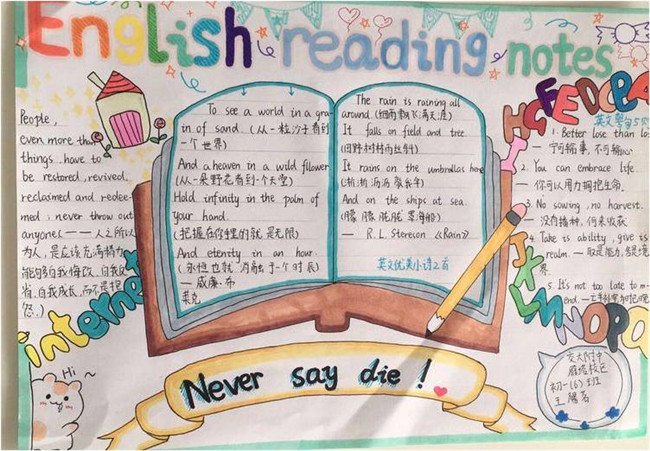 English reading notes
People,
even more than
things, have to
be restored, revived,
reclaimed and redee-
med : never throw out
anyone(———人之所以
为人,是应该充满精力
能够自我悔改,自我反
省,自我成长,而不是抱
怨。)
internet
To see a world in a gra-
in of sand. (从一粒沙子看到
一个世界)
And a heaven in a wild fllower
(从一朵野花看到一个天堂)
Hold infinity in the palm of
your hand.
(把握在你手里的就是无限)
And etenity in an hour.
(永恒也就消融于一个时辰)
— 威廉·布
莱克
The rain is raining all
around.
It falls on field and tree.
It rains on the umbrollas here
And on the ships at sea.
— R.L. Steveson 《Rain》
英文优美小诗之首
HGFEDCBA
I
JKLMNOPQ
英文警句5
1. Better lose than lo
— 宁可输事,不可输心
2. You can embrace life.
— 你可以用力拥抱生命.
3. No sowing, no harvest.
— 没有播种,何来收获
4. Take is ability, give is
realm. — 取是能力,舍是境
界.
5. It's not too late to m-
end —
Never say die !
Hi ~
交大附中
雁塔校区
初一(6)班
王